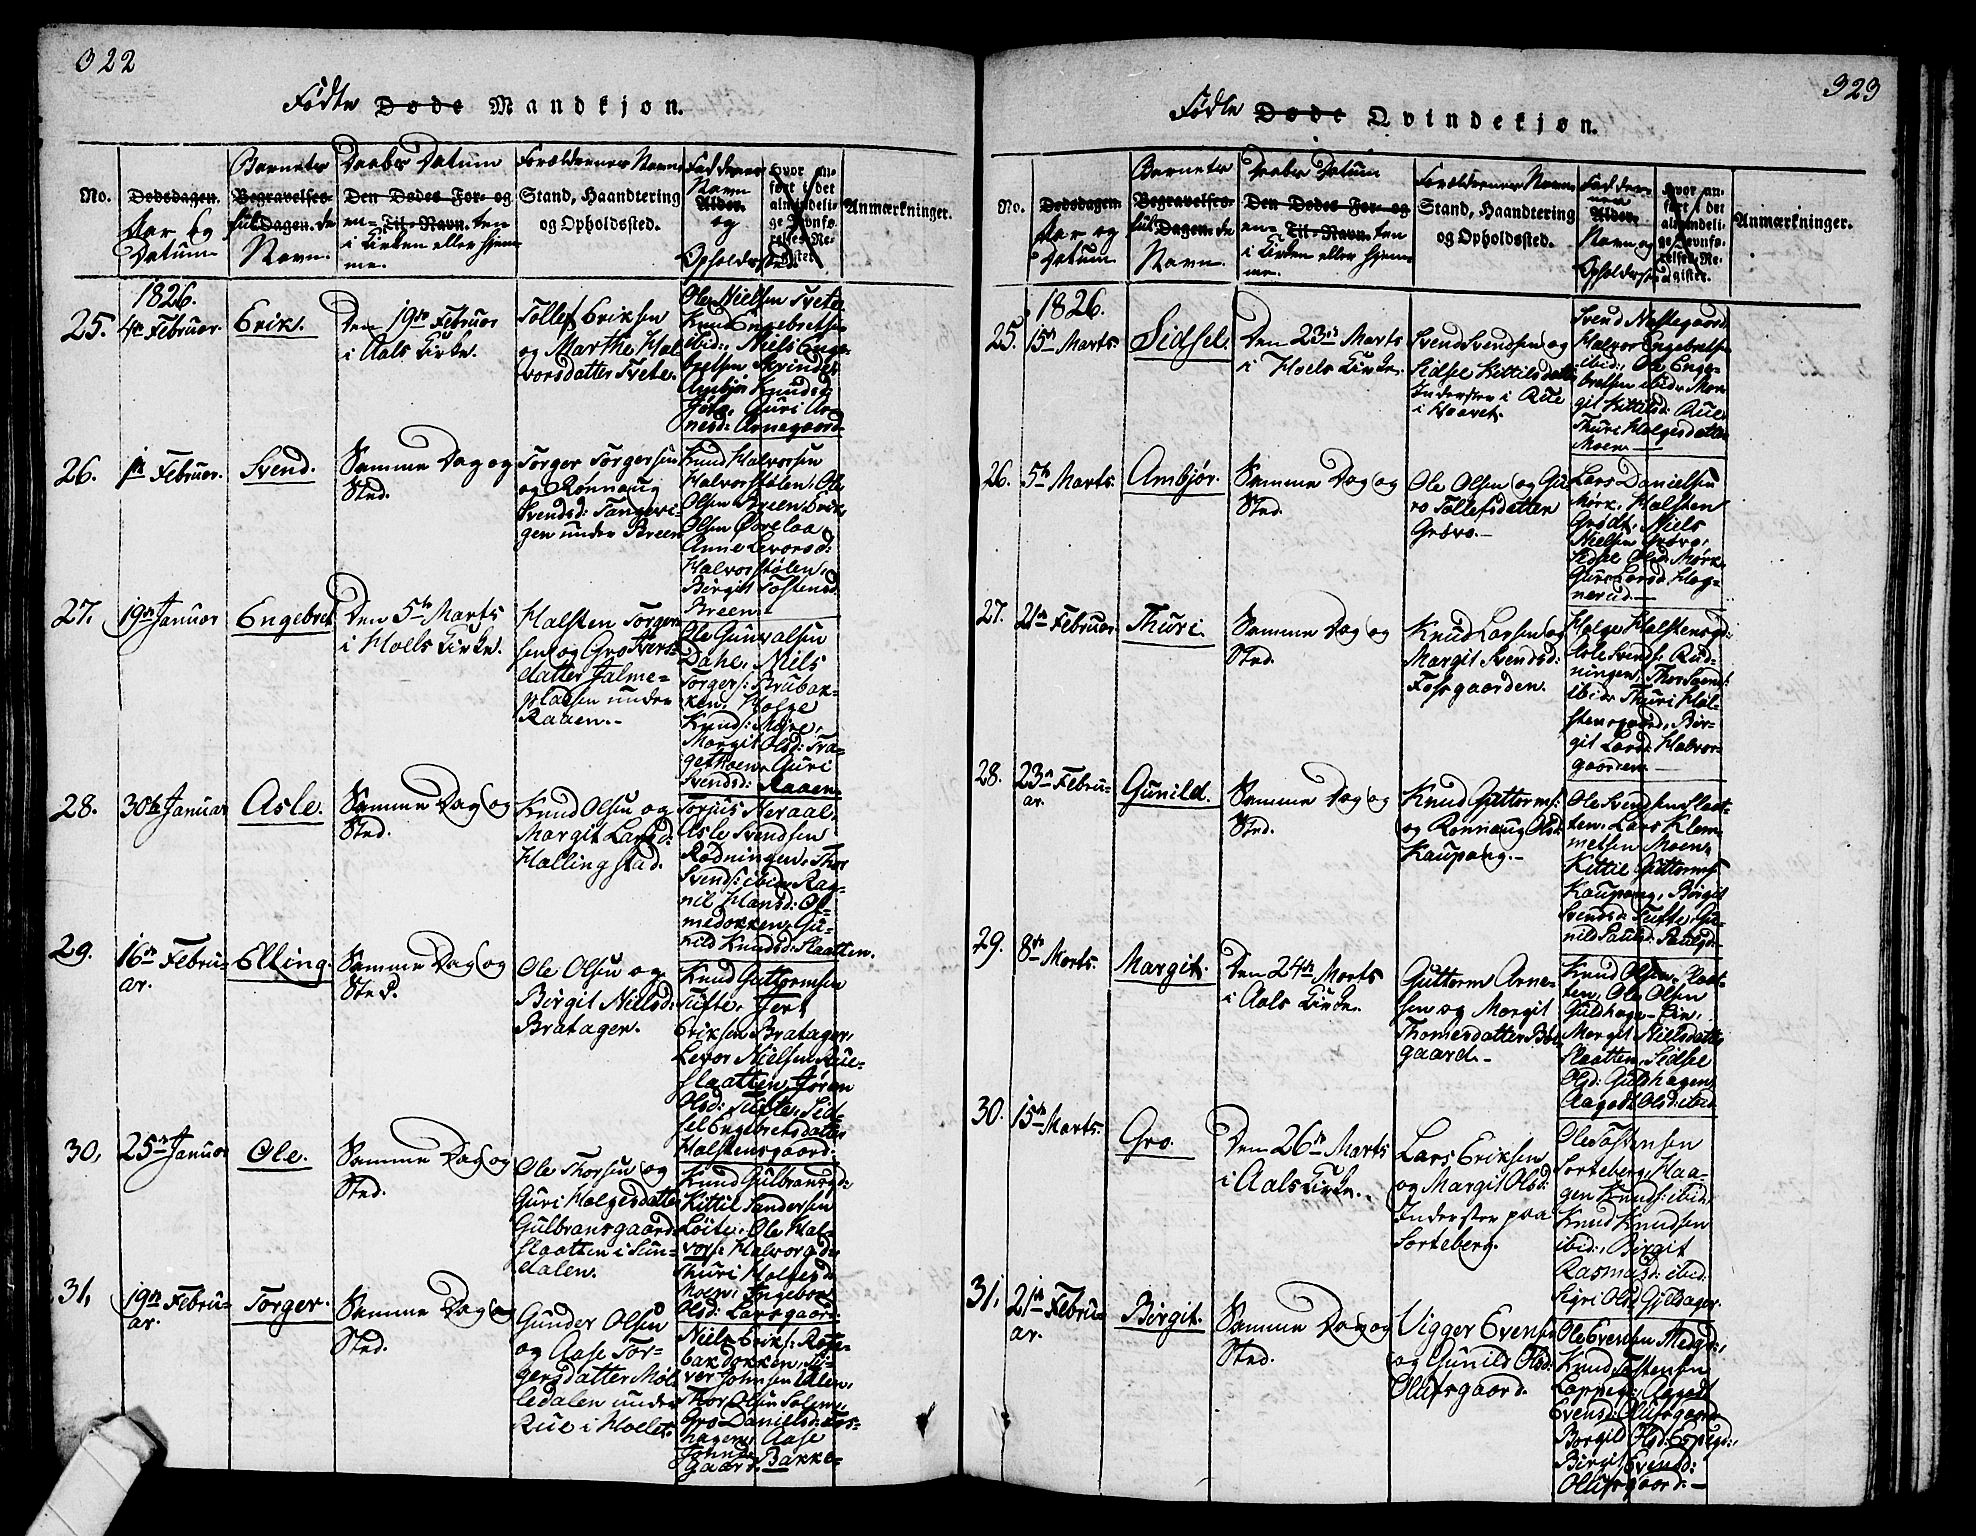 322
Fødte Døde Mandkjøn.
No.
Dødsdagen.
Aar og
Datum
Barnets
Begravelses-
Dagen. de
Navn.
Daabs Datum
Den Dødes For- og
Til-Navn. ten
i Kirken eller hjem-
me.
Forældrenes Navn,
Stand, Haandtering
og Opholdssted.
Faddernes
Navn
Alder.
og
Opholdssted.
Hvor an-
ført i det
almindeli-
ge Jevnfø-
relses-Re-
gister.
Anmærkninger.
1826.
25. 4de Februar.
Erik.
Den 19de Februar
i Aals Kirke.
Tollef Eriksen
og Marthe Hal
vorsdatter Tvete.
Ole Nielsen Tvete,
Knud Engebretsen
ibid:, Niels Enge-
bretsen Skrinde,
Ambjør Knudsd
Guri Ar-
nesd: Arnegaard
26. 1ste Februar.
Svend.
Samme Dag og
Sted.
Torger Torgersen
og Rønnaug
Svendsd: Tangeri-
gen under Breen
Knud Halvorsen
Halvorstølen, Ole
Olsen Breen, Erik
Olsen Øvrelaa
Anne Levorsd:
Halvorstølen,
Birgit Tostensd
Breen.
27. 19de Januar
Engebret
Den 5te Marts
i Hoels Kirke.
Halsten Torger
sen og Gro Ivers-
datter Jalme-
pladsen under
Raaen.-
Ole Gunvalsen
Dahle, Niels
Torgers: Brubak-
ken, Holge
Knuds: More,
Margit Olsd: Tra-
gethoen, Guri
Svendsd: Raaen
28. 30te Januar
Asle.
Samme Dag og
Sted.
Knud Olsen og
Margit Larsd:
Hallingstad.
Torjus Neraal,
Asle Svendsen
Rødningen, Thor
Svends: ibid: Rag-
nil Hansd: Ol-
medokken, Gu-
nild Knudsd: Slaatten.
29. 16de Febru-
ar.
Elling.
Samme Dag og
Sted.
Ole Olsen og
Birgit Nielsd:
Bratager.
Knud Guttormsen
Tufte, Gert
Eriksen Bratager,
Levor Nielsen Rue-
slaatten, Jøran
Olsd: Tufte, Sid-
sel Engebretsdatter
Halstensgaard.
30. 25de Januar
Ole.
Samme Dag og
Sted.
Ole Thorsen og
Guri Holgesdatter
Gulbransgaard-
slaatten i Sun-
dalen.
Knud Gulbransgd:
Kittil Sandersen
Løite, Ole Hal-
vors: Halvorgd:
Thuri Holgesd:
Moen, Ingebor
Olsd: Larsgaard.
31. 19de Febru-
ar.
Torger.
Samme Dag og
Sted.
Gunder Olsen
og Aase Tor-
gersdatter Møl
ledalen under
Rue i Hoelet.
Niels Eriks:
bakdokken, Si-
ver Johnsen Ulen,
Thor Olsen Solem,
Gro Danielsd:
hagen, Aase
Johnsd: Bakke-
gaard.
323
Fødte Døde Qvindekjøn.
No.
Dødsdagen.
Aar og
Datum
Barnets
Begravelses-
Dagen. de
Navn.
Daabs Datum
Den Dødes For- og
Til-Navn. ten
i Kirken eller hjem-
me.
Forældrenes Navn,
Stand, Haandtering
og Opholdssted.
Fadder-
nes
Alder.
Navn og
Opholdssted
Hvor an-
ført i det
almindeli-
ge Jevnfø-
relses-Re-
gister.
Anmærkninger.
1826.
25. 15de Marts.
Sidsel.
Den 23de Marts
i Hoels Kirke.
Svend Svendsen og
Sidse Kittilsdatter
Inderster i Rue
i Hoovet.
Svend Nestegaard
Halvor Engebretsen
ibid:, Ole Enge-
bretsen ibid: Mar
git Kittilsd: Rue,
Thuri Holgesdatter
Moen.
26. 5te Marts.
Ambjør.
Samme Dag og
Sted.
Ole Olsen og Gu
ro Tollefsdatter
Grøvo.-
Lars Danielsen
Mørk, Halsten
Grødt, Niels
Nielsen Grøvo,
Sidsel Olsd: Mørk
Guri Larsd: Hag-
nerud.
27. 21de Februar
Thuri.
Samme Dag og
Sted.
Knud Larsen og
Margit Svendsd:
Fossgaarden.
Holge Halstensgd:
Asle Svends: Rud-
ningen, Thor Svends:
ibid: Thuri Hal-
stensgaard, Bir-
git Larsd: Halvor-
gaarden.
28. 23de Febru-
ar.
Gunild.
Samme Dag og
Sted.
Knud Guttorms:
og Rønnaug Olsd:
Kaupang.-
Ole Svendsen Slaat-
ten, Lars Klem
metsen Moen,
Kittil Guttorms:
Kaupang, Birgit
Svendsd: Tufte, Gu-
nild Paulsd: Paulsgd.
29. 8de Marts.
Margit.
Den 24de Marts
i Aals Kirke.
Guttorm Arne-
sen og Margit
Thomesdatter
gaard.-
Knud Olsen Slaat-
ten, Ole Olsen
Guldhagen
Margit Nielsdatter
Slaatten, Sidsel
Olsd: Guldhagen,
Aagot Olsd: ibid
30. 15de Marts.
Gro.
Den 26de Marts
i Aals Kirke.
Lars Eriksen
og Margit Olsd:
Inderster paa
Sorteberg.
Ole Tostensen
Sorteberg, Haa-
gen Knuds: ibid,
Knud Knudsen
ibid:, Birgit
Rasmusd: ibid
Sigri Olsd:
31. 21de Febru-
ar.
Birgit.
Samme Dag og
Sted.
Vigger Evensen
og Gunild Olsd:
Olufsgaard.
Ole Evensen Medgd:,
Knud Tostensen
Aagot
Evensd: Olufsgaard
Borgil Olsd: Espegd:,
Birgit Evensd:
Olufsgaard.-